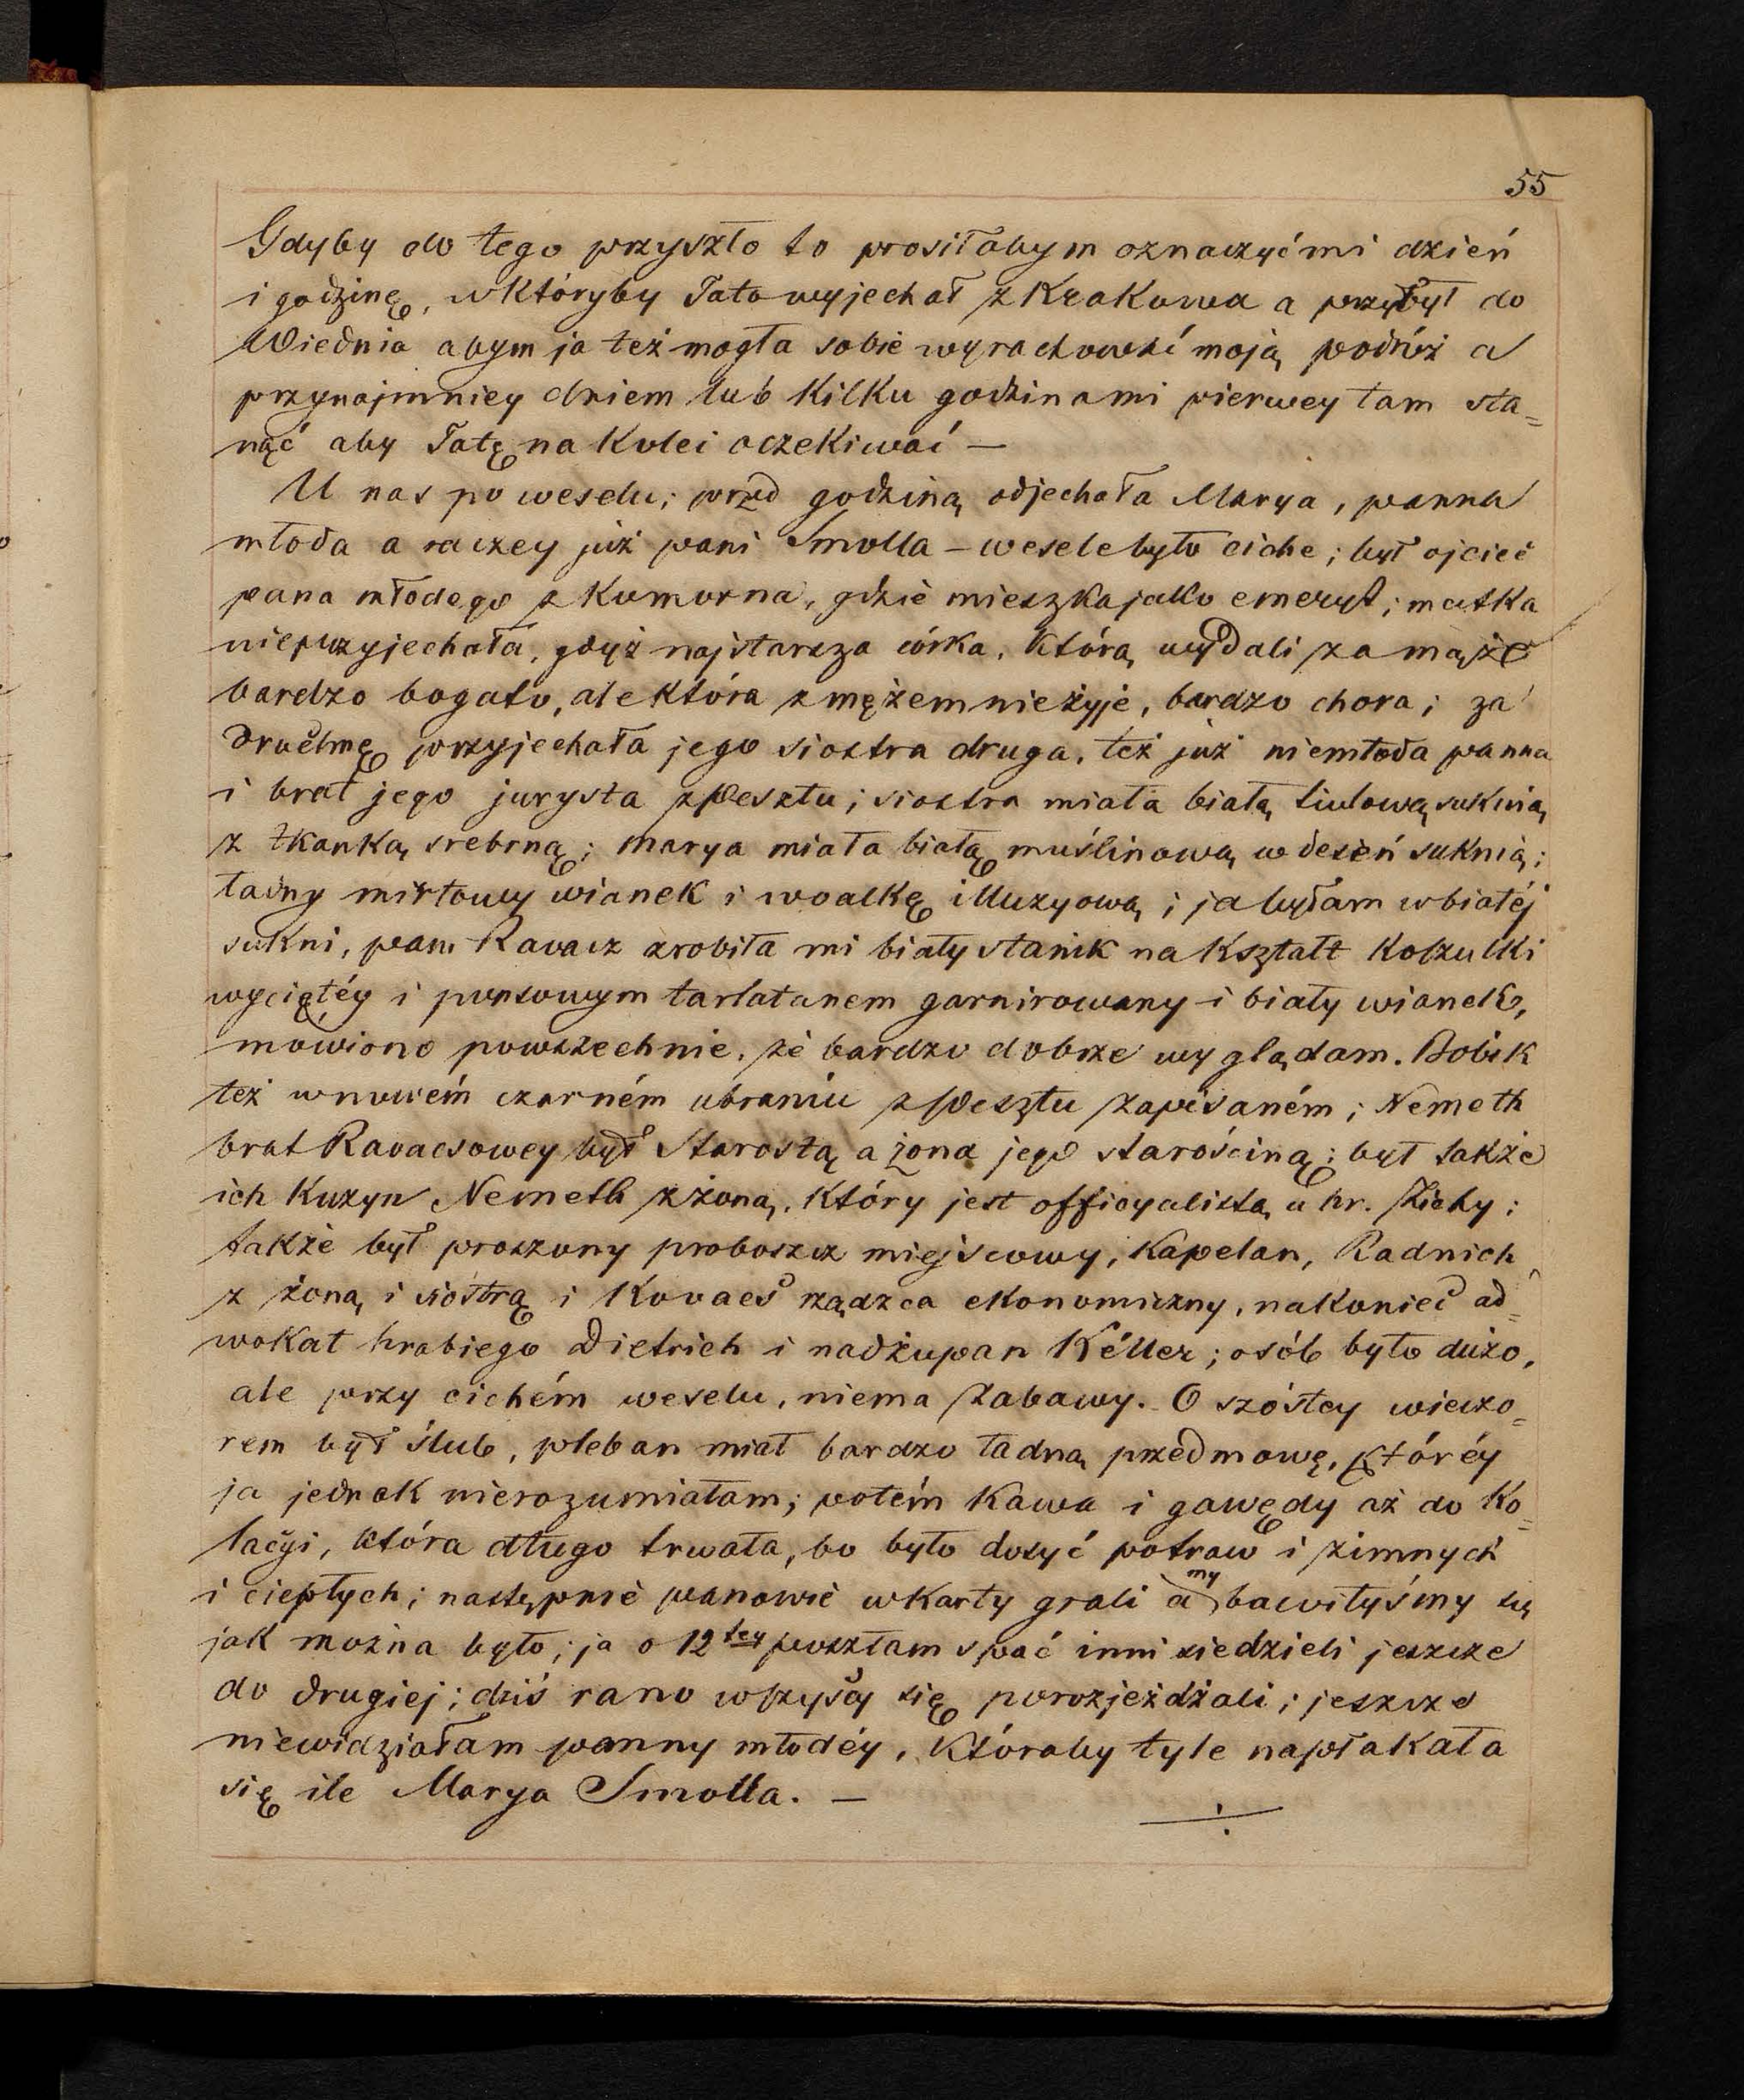 55
Gdyby do tego przyszło to prosiłabym oznaczyć mi dzień
i godzinę, w któryby Tato wyjechał z Krakowa a przybył do
Wiednia abym ja też mogła sobie wyrachować moją podróż a
przynajmniey dniem lub kilku godzinami pierwey tam sta=
nąć aby Tatę na kolei oczekiwać —
U nas po weselu; przed godziną odjechała Marya, panna
młoda a raczey już pani Smolla – wesele było ciche; był ojciec
pana młodego z Komorna, gdzie mieszka jako emeryt; matka
nieprzyjechała, gdyż najstarsza córka, którą wydali za mąż
bardzo bogato, ale która z mężem nieżyje, bardzo chora; za
druchnę przyjechała jego siostra druga, też już niemłoda panna
i brat jego jurysta z Pesztu; siostra miała białą tiulową suknią
z tkanką srebrną; Marya miała białą muślinową w deseń suknią;
ładny mirtowy wianek i woalkę illuzyową i ja byłam w białéj
sukni, pani Ravacz zrobiła mi biały stanik na kształt koszulki
wyciętéy i ponsowym tarlatanem garnirowany i biały wianek,
mówiono powszechnie, że bardzo dobrze wyglądam. Bobik
też w nowém czarném ubraniu z Pesztu zapisaném; Nemeth
brat Ravacsowey był Starostą a żona jego starościną; był także
ich kuzyn Nemeth z żoną, który jest officyalistą u hr. Zichy;
także był proszony proboszcz miejscowy, Kapelan, Radnich
z żoną i siostrą i Kovacs rządzca ekonomiczny, nakoniec ad=
wokat hrabiego Dietrich i nadżupan Kéller; osób było dużo,
ale przy cichém weselu, niema zabawy. O szóstey wieczo=
rem był ślub, pleban miał bardzo ładną przedmowę, któréy
ja jednak nierozumiałam; potém kawa i gawędy aż do ko=
lacyi, która długo trwała, bo było dosyć potraw i zimnych
i ciepłych; następnie panowie w karty grali a my bawiłyśmy się
jak można było; ja o 12tey poszłam spać inni siedzieli jeszcze
do drugiej; dziś rano wszyscy się porozjeżdżali; jeszcze
niewidziałam panny młodéy, któraby tyle napłakała
się ile Marya Smolla. —